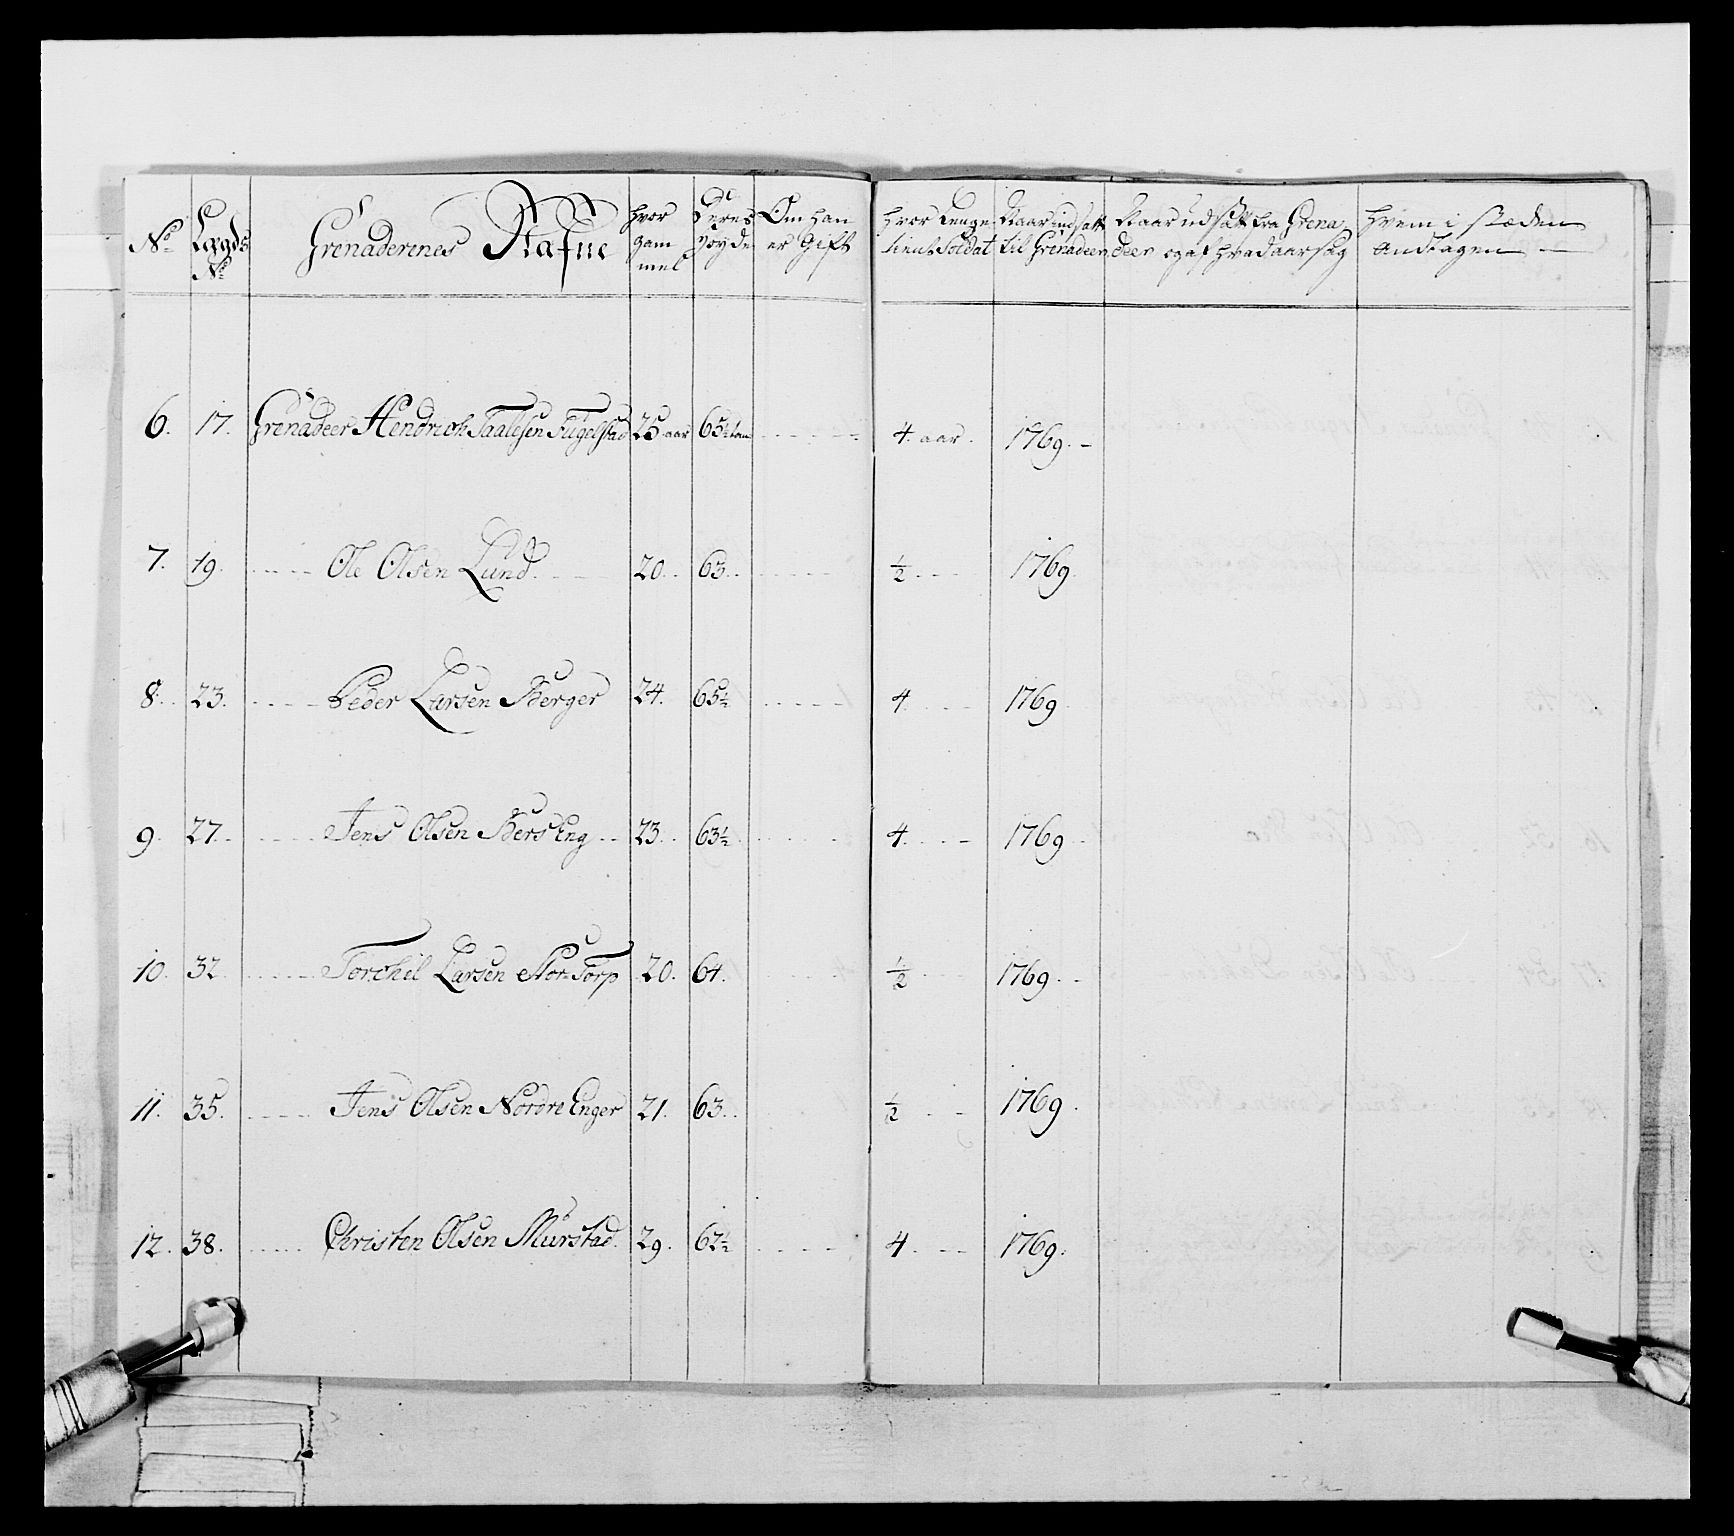 No Lægds No Grenaderenes Nafne hvor gammel Deres Høyde Om han er Gift hvor Lenge tient Soldat Naar indsatt til Grenadeer Naar udsatt fra Grenadeer og af hvad aarsag Hvem i stæden antagen
6. 17. Grenadeer Hendrich Taalesen Fugelstad 25 aar 65½ tom 4 aar. 1769.
7. 19. Ole Olsen Lund. 20. 63. ½ 1769.
8. 23. Peder Larsen Berger 24. 65½ 4 1769.
9. 27. Jens Olsen BersEng 23. 63½ 4. 1769
10. 32. Torchel Larsen Nor Torp 20. 64. ½ 1769.
11. 35. Jens Olsen Nordre Enger 21. 63. ½ 1769.
12. 38. Christen Olsen Murstad. 29. 62½ 4. 1769.